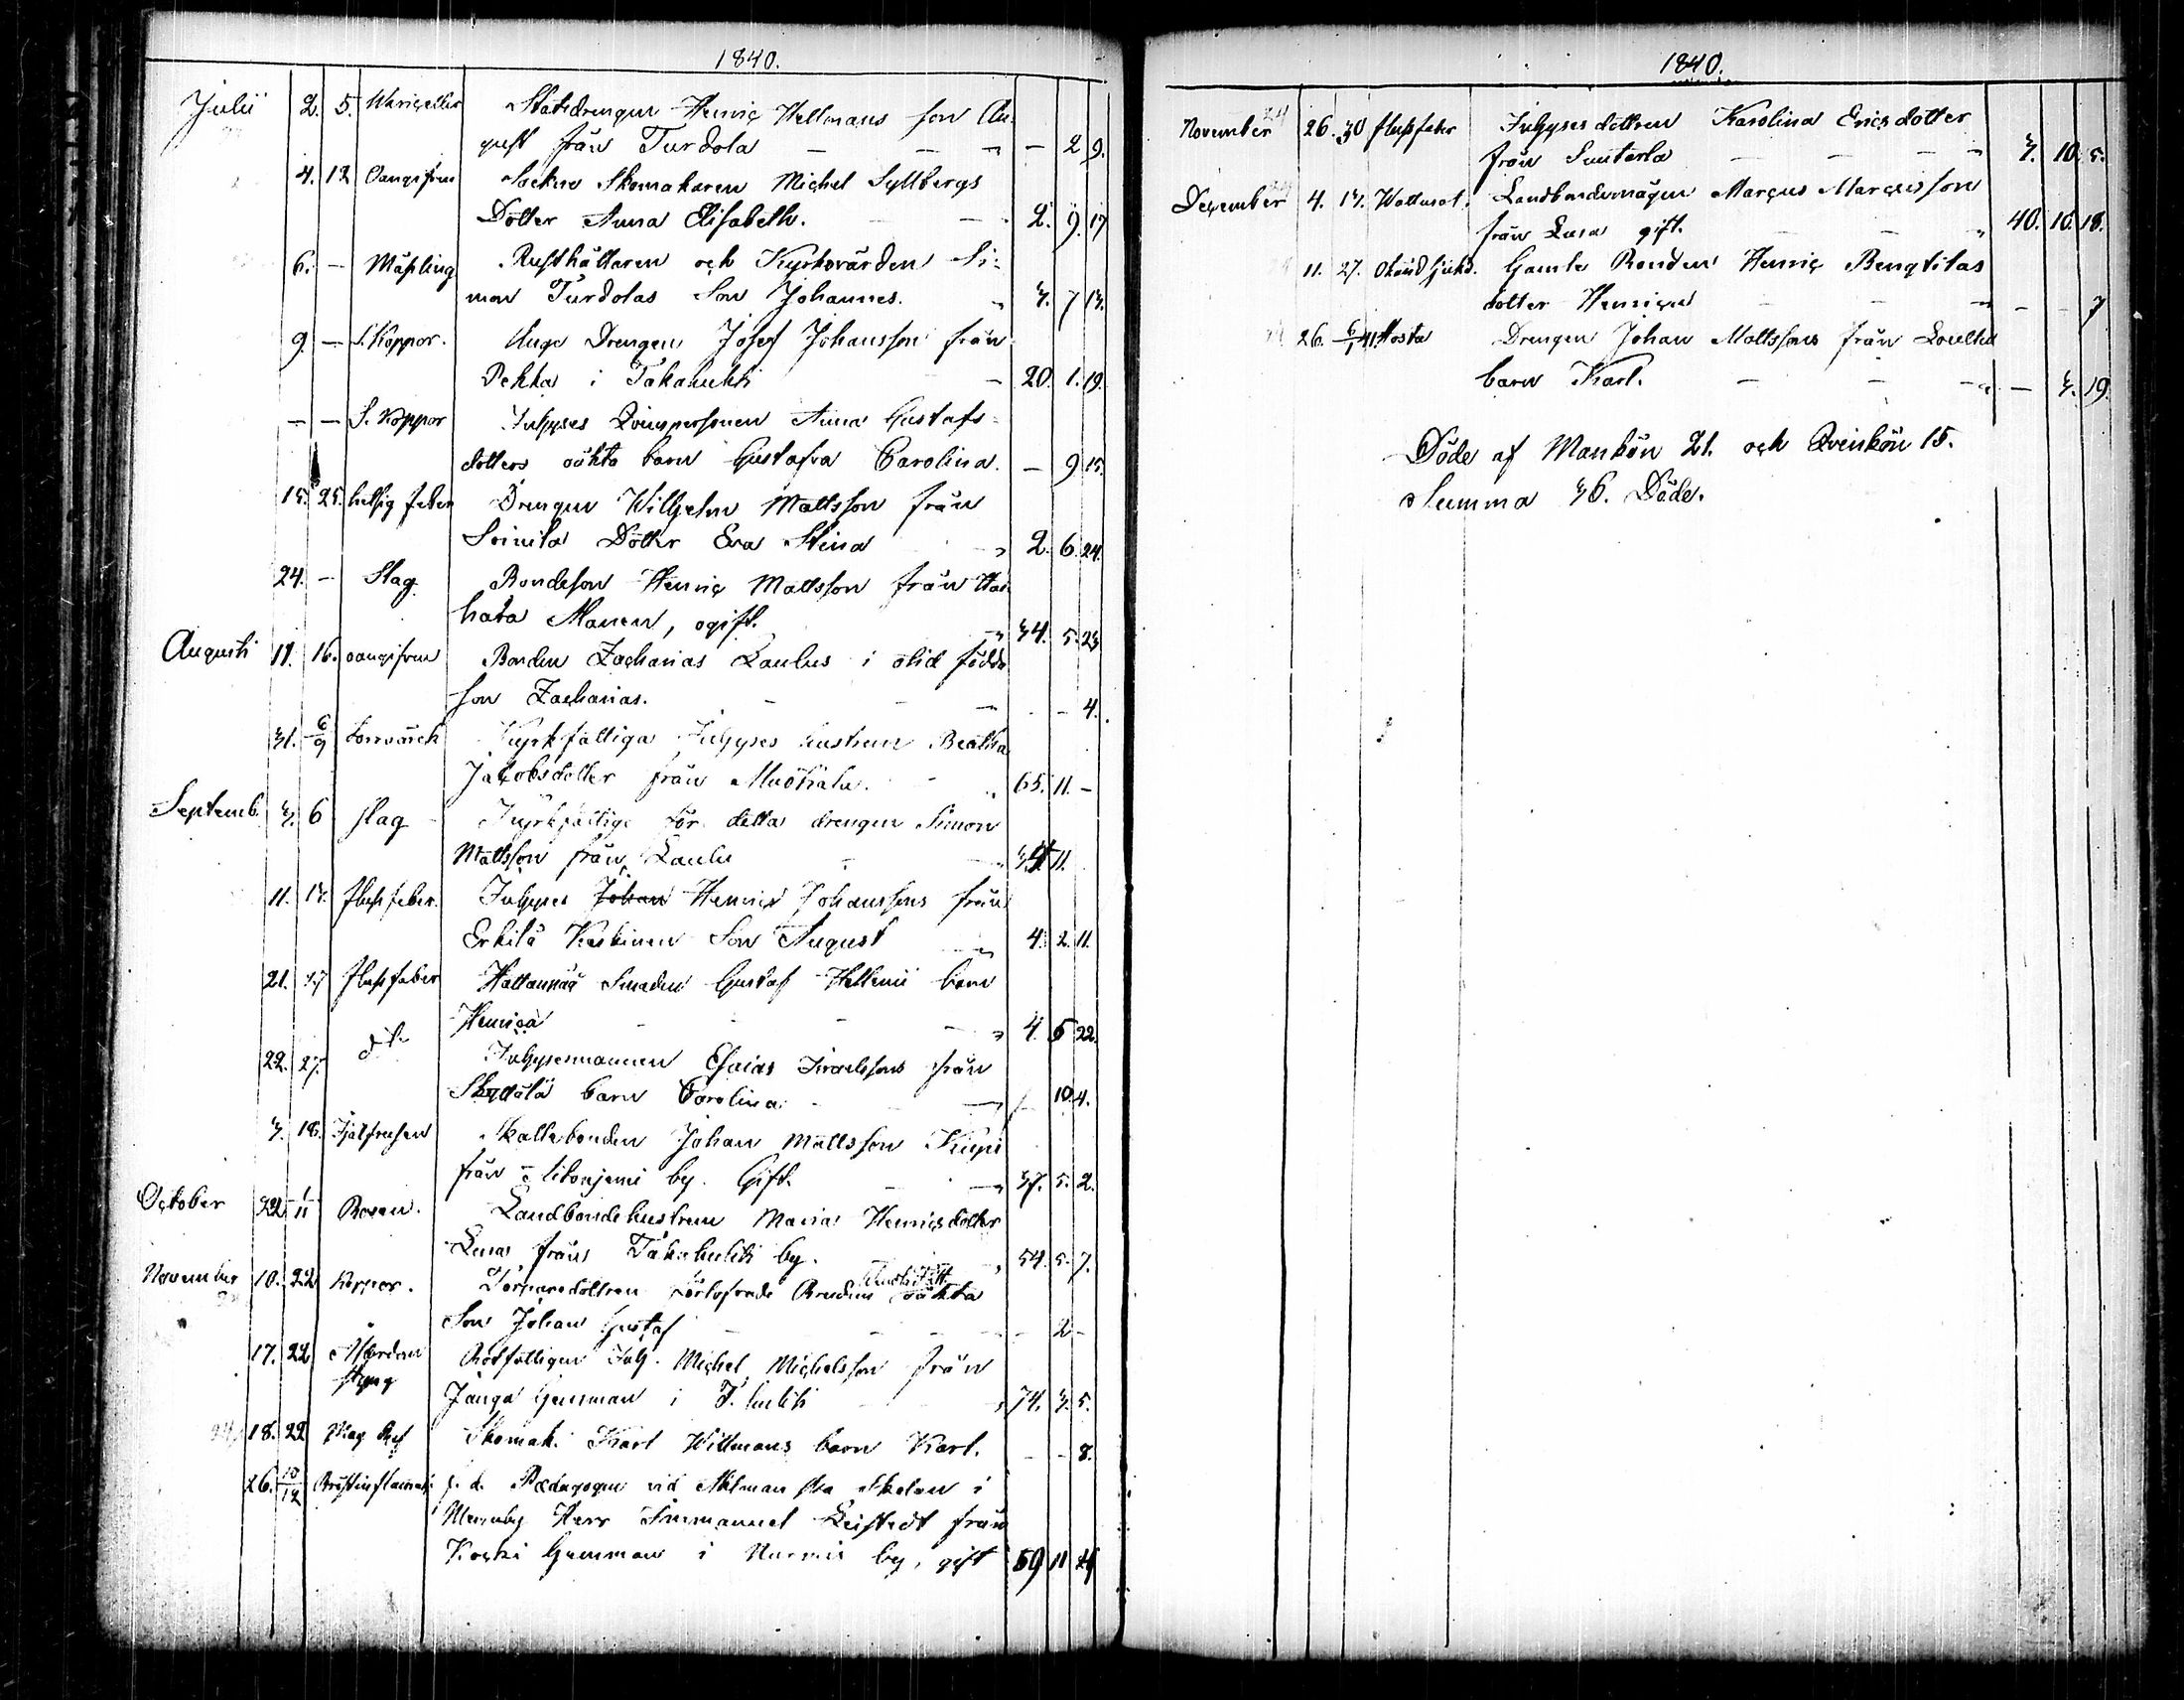 1840.
Julii 2. 5. Statsdrengen Henric Hellmans son Au-
gust från Turdola — — — 2 9.
4. 12 Oangifven Socken Skomakaren Michel Syllbergs
Dotter Anna Elisabeth. — 2. 9. 17
6. — Mäßling Rusthållaren och Kyrkovärden Si-
mon Turdolas Son Johannes. 3. 7 13.
9. — S. Koppor. Unge Drengen Josef Johansson från
Pekka i Takahuhti — 20. 1. 19.
— — S. Koppor Inhyses Qvinspersonen Anna Gustafs-
dotters oäkta barn Gustafva Carolina. — 9 15.
15. 25. hetsig feber Drengen Wilhelm Mattsson från
Soinila Dotter Eva Stina 2. 6. 24.
24. — Slag Bondeson Henric Mattsson från
hata Manen, ogift. 34. 5. 23
Augusti 11. 16. oangifven Bonden Zacharias Laulus i otid födde
son Zacharias. — — — - — 4.
31. 6/9 Kyrkfattiga Inhyses hustrun Beatha
Jacobsdotter från 65. 11. —
Septemb. 3. 6 slag Kyrkfattige för detta drengen Simon
Mattsson från Laulu 11.
11. 13. flußfeber. Inhyses Johan Henric Johanssons från
Erkilä Keskinen Son August 4. 2. 11.
21. 27 flußfeber Hattanpää Smeden Gustaf Hellenii barn
Henrica 4. 6 22.
22. 27. dº Inhysesmannen Esaias Israelssons från
barn Carolina. 10. 4.
3. 18. Skattebonden Johan Mattsson Kupi
från by. Gift. 37. 5. 2.
October 22. 1/11 Landbondehustrun Maria Henricsdotter
Lusa från Takahuhti by. 54. 5. 7.
November 10. 22 Koppor. Torparedottren förlofvade oäkta
Son Johan Gustaf — 2 —
17. 22 Ålderdom Rotfattigen Inh. Michel Michelsson från
Janga Gumman i T. huhti 74. 3. 5.
18. 22 Skomak. Karl Willmans barn Karl. — — 8.
26. 10/12 Bröstinflamat. f. d. Pædagogen vid Ahlmanska Skolan i
Messuby Herr Immanuel Leistedt från
Koski Gumman i Nurmis by, gift 59 11
1840.
November 26. 30 flußfeber Inhysesdottren Karolina Ericsdotter
från Santerla — — — 3. 10. 5.
December 4. 13. Wattusot. Landbondemågen Marcus Marcusson
från Lusa gift. — — 40. 10. 18.
11. 27. Okänd sjukd. Gamla Bonden Henric Bengtilas
dotter Henrica — — — — 7
26. 6/1 41. Hosta Drengen Johan Mattssons från
barn Karl. — — — — 3. 19.
Döde af Mankön 21. och Qvinkön 15.
Summa 36. Döde.